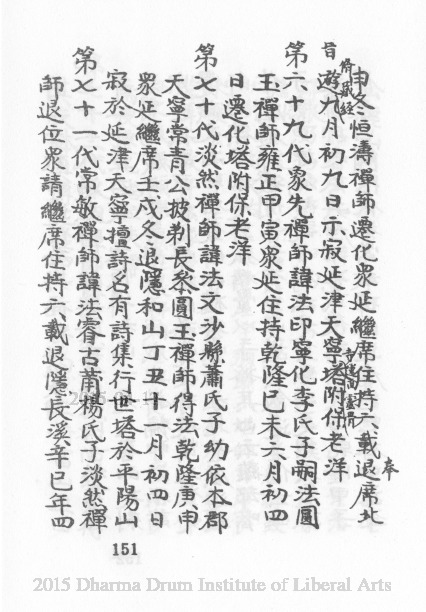 冬恒濤禪師遷化眾延繼席住持六載退席北
遊九月初九日示寂延津天寧塔附保老洋
奉
旨
第六十九代象先禪師諱法印寧化李氏子嗣法圓
玉禪師雍正甲寅眾延住持乾隆己未六月初四
日遷化塔附保老洋
第七十代淡然禪師諱法文沙縣蕭氏子幼依本郡
天寧常青公披剃長參圓玉禪師得法乾隆庚申
眾延繼席壬戌冬退隱和山丁丑十一月初四日
寂於延津天寧擅詩名有詩集行世塔於平陽山
第七十一代常敏禪師諱法睿古莆楊氏子淡然禪
師退位眾請繼席住持六載退隱長溪辛巳年四
151
2015 Dharma Drum Institute of Liberal Arts